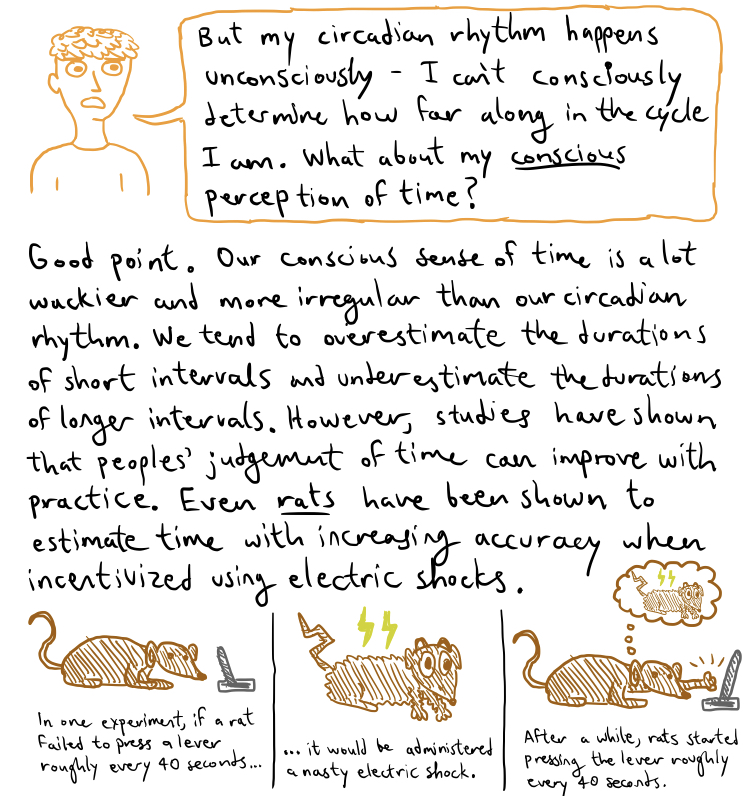 But my circadian rhythm happens
unconsciously - I can't consciously
determine how far along in the cycle
I am. What about my conscious
perception of time?
Good point. Our conscious sense of time is a lot
wackier and more irregular than our circadian
rhythm. We tend to overestimate the durations
of short intervals and underestimate the durations
of longer intervals. However, studies have shown
that peoples' judgement of time can improve with
practice. Even rats have been shown to
estimate time with increasing accuracy when
incentivized using electric shocks.
In one experiment, if a rat
failed to press a lever
roughly every 40 seconds...
... it would be administered
a nasty electric shock.
After a while, rats started
pressing the lever roughly
every 40 seconds.